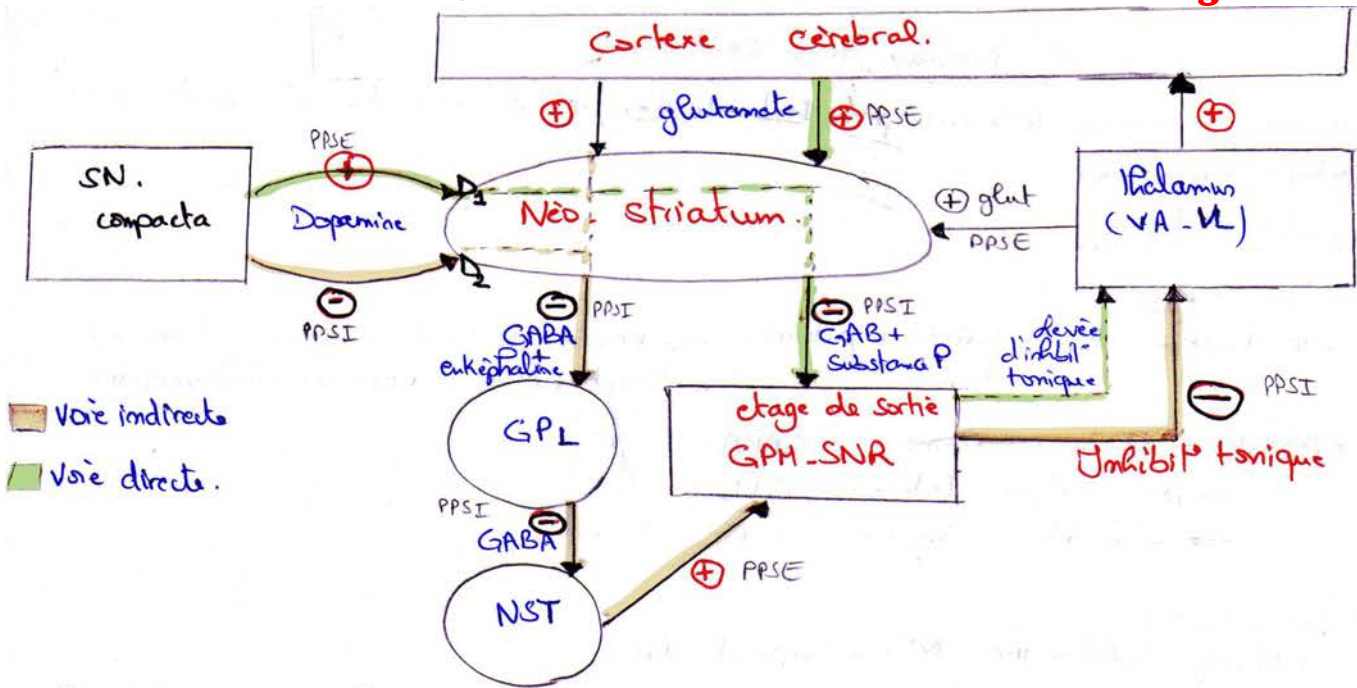 Cortexe cérébral.
glutamate
+
+ PPSE
+
SN.
compacta
PPSE
+
Dopamine
-
PPSI
D1
D2
Néo-striatum.
+ glut
PPSE
Thalamus
(VA-VL)
- PPSI
GABA
+
enképhaline
- PPSI
GAB+
Substance P
levée
d'inhibit°
tonique
- PPSI
Inhibit° tonique
GPL
etage de sortie
GPM-SNR
voie indirecte
Voie directe.
PPSI -
GABA
NST
+ PPSE